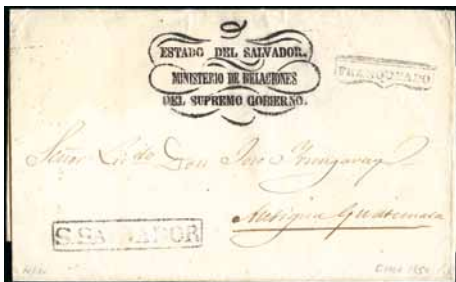 ESTADO DEL SALVADOR.
MINISTERIO DE RELACIONES
DEL SUPREMO GOBIERNO.
FRANQUEADO
Señor Lic.do Don Jose
Antigua Guatemala
S.SALVADOR